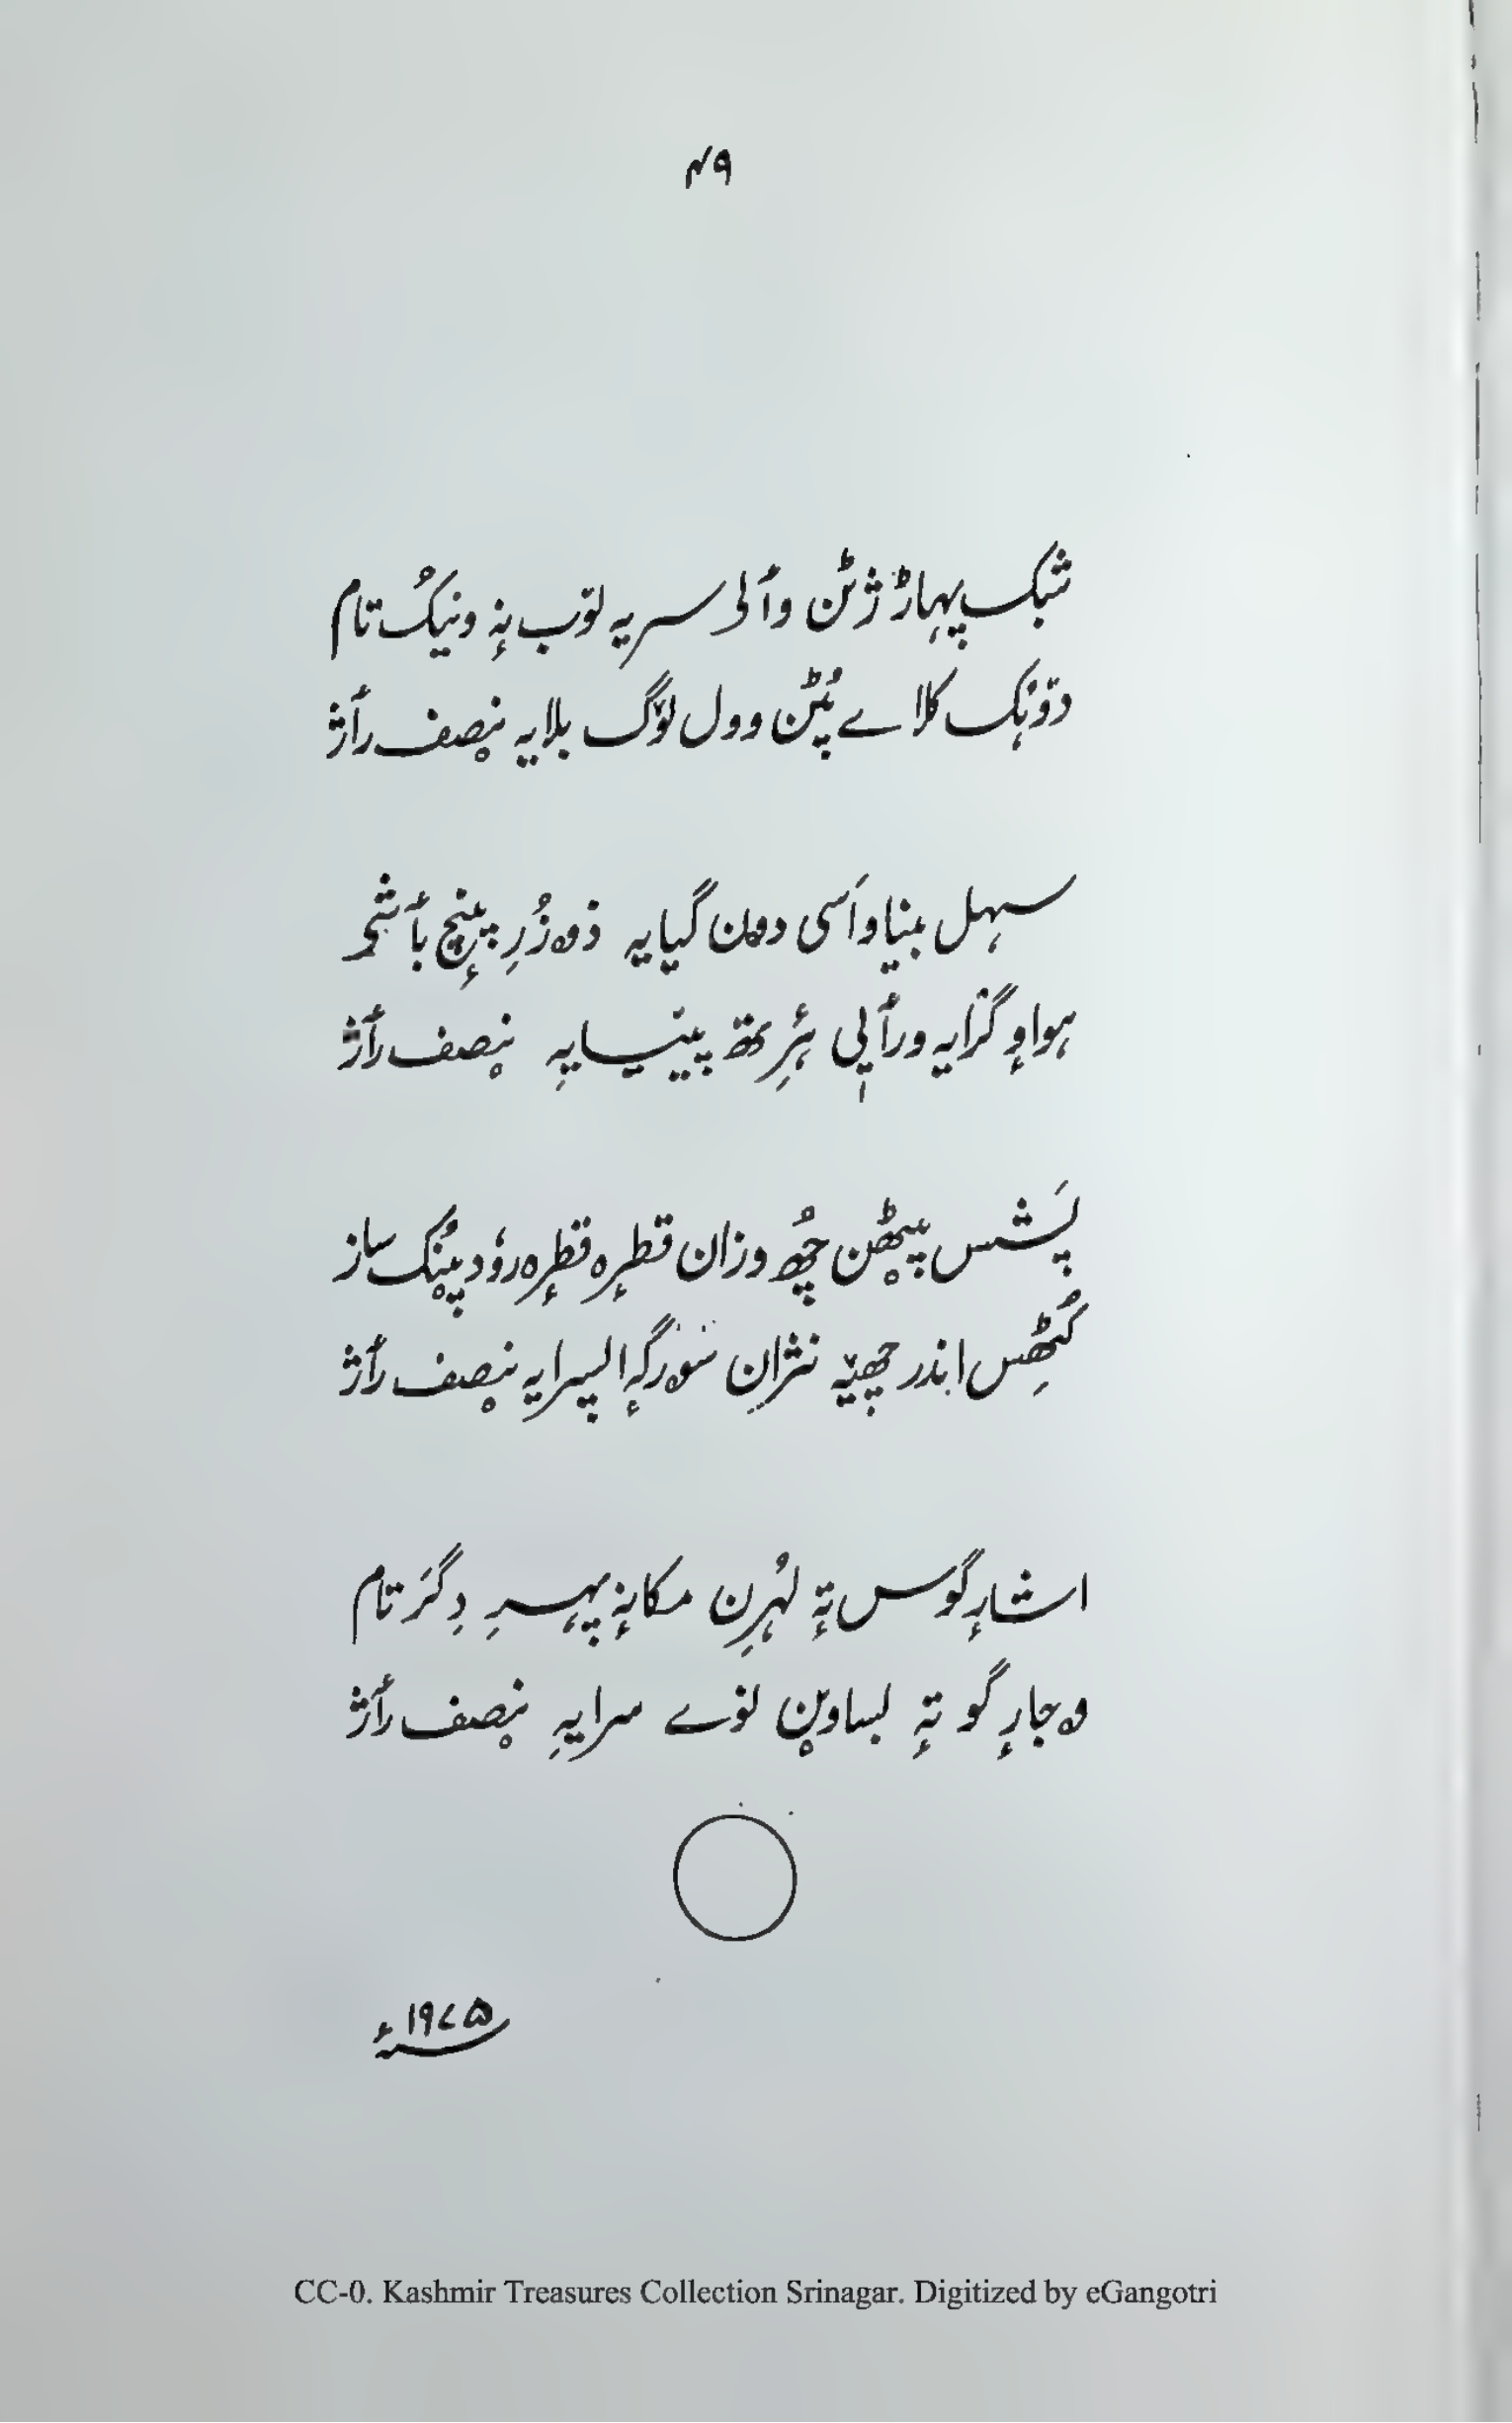 ۴۹
شبک پہاڑ ژٹن وألی سریہ لوٚب نہٕ ونیکُ تام
دۆہک کلاے پُٹن وول لوٚگ بلایہ نصف رأژ
سہل بنیاو أسی دون گیایہ ذہ زُرِ پینچ بأشجی
ہواوٕ گرایہ ورأے ہُرِ تھ پینسایہِ نصف رأژ
پَشس پیٹھن چھُ وزان قطرٕہ قطرٕہ روٗد پنُک ساز
کُٹھِس اندر چھیہٚ نژان سورگہٕ اپسرایہ نصف رأژ
اشارٕ گوس تہٕ لہُرِن مکانہٕ پہرِ دِگَر تام
وہ جارٕ گو تہٕ بساون لوٚے سرایہِ نصف رأژ
۱۹۷۵ء
CC-0. Kashmir Treasures Collection Srinagar. Digitized by eGangotri